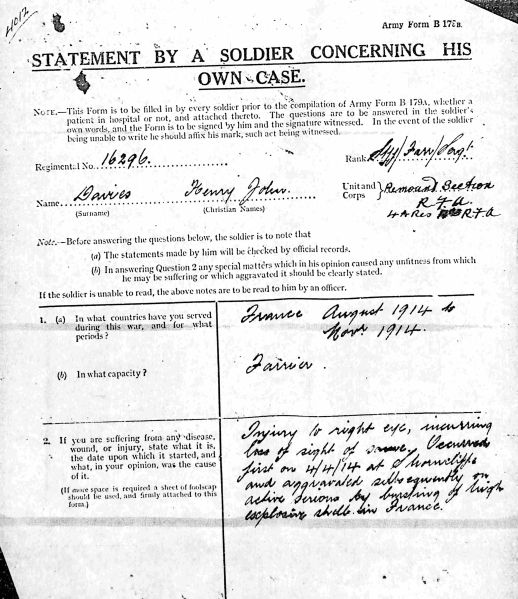 4012
Army Form B 178B.
STATEMENT BY A SOLDIER CONCERNING HIS
OWN CASE.
NOTE.—This Form is to be filled in by every soldier prior to the compilation of Army Form B 179A, whether a
patient in hospital or not, and attached thereto. The questions are to be answered in the soldier's
own words, and the Form is to be signed by him and the signature witnessed. In the event of the soldier
being unable to write he should affix his mark, such act being witnessed.
Regimental No. 16296. Rank Staff/Farr/Sergt
Name Davies Henry John. Unit and Corps } Remount Section
(Surname) (Christian Names) R.F.A.
4 A Res R.F.A
Note.—Before answering the questions below, the soldier is to note that
(a) The statements made by him will be checked by official records.
(b) In answering Question 2 any special matters which in his opinion caused any unfitness from which
he may be suffering or which aggravated it should be clearly stated.
If the soldier is unable to read, the above notes are to be read to him by an officer.
1. (a) In what countries have you served
during this war, and for what
periods?
France August 1914 to
Novr 1914.
(b) In what capacity?
Farrier.
2. If you are suffering from any disease,
wound, or injury, state what it is,
the date upon which it started, and
what, in your opinion, was the cause
of it.
(If more space is required a sheet of foolscap
should be used, and firmly attached to this
form.)
Injury to right eye, incurring
loss of sight of same. Occurred
first on 4/4/14 at Shorncliffe
and aggravated subsequently on
active service by bursting of high
explosive shells in France.